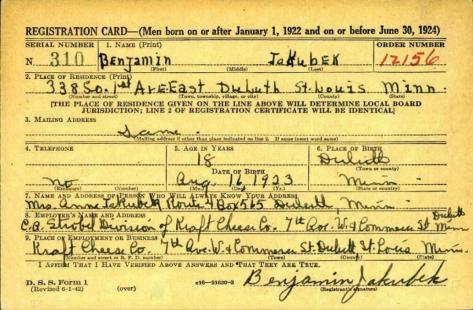 REGISTRATION CARD—(Men born on or after January 1, 1922 and on or before June 30, 1924)
SERIAL NUMBER 1. NAME (Print) ORDER NUMBER
N 310 Benjamin Jakubek 12156
(First) (Middle) (Last)
2. PLACE OF RESIDENCE (Print)
338 So. 1st Ave East Duluth St. Louis Minn.
(Number and street) (Town, township, village, or city) (County) (State)
[THE PLACE OF RESIDENCE GIVEN ON THE LINE ABOVE WILL DETERMINE LOCAL BOARD
JURISDICTION; LINE 2 OF REGISTRATION CERTIFICATE WILL BE IDENTICAL]
3. MAILING ADDRESS
Same
[Mailing address if other than place indicated on line 2. If same insert word same]
4. TELEPHONE 5. AGE IN YEARS 6. PLACE OF BIRTH
18 Duluth
DATE OF BIRTH (Town or county)
No Aug. 16, 1923 Minn
(Exchange) (Number) (Mo.) (Day) (Yr.) (State or country)
7. NAME AND ADDRESS OF PERSON WHO WILL ALWAYS KNOW YOUR ADDRESS
Mrs. Anna Jakubek Route 4 Box 565 Duluth Minn
8. EMPLOYER'S NAME AND ADDRESS Duluth
C.A. Strobel Division of Kraft Cheese Co. 7th Ave. W. & Commerce St. Minn
9. PLACE OF EMPLOYMENT OR BUSINESS
Kraft Cheese Co. 7th Ave. W. & Commerce St. Duluth St. Louis Minn.
(Number and street or R. F. D. number) (Town) (County) (State)
I AFFIRM THAT I HAVE VERIFIED ABOVE ANSWERS AND THAT THEY ARE TRUE.
D. S. S. Form 1 Benjamin Jakubek
(Revised 6-1-42) (over) (Registrant's signature)